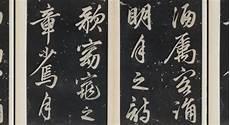 酒屬客誦
明月之詩
歌窈窕之
章少焉月